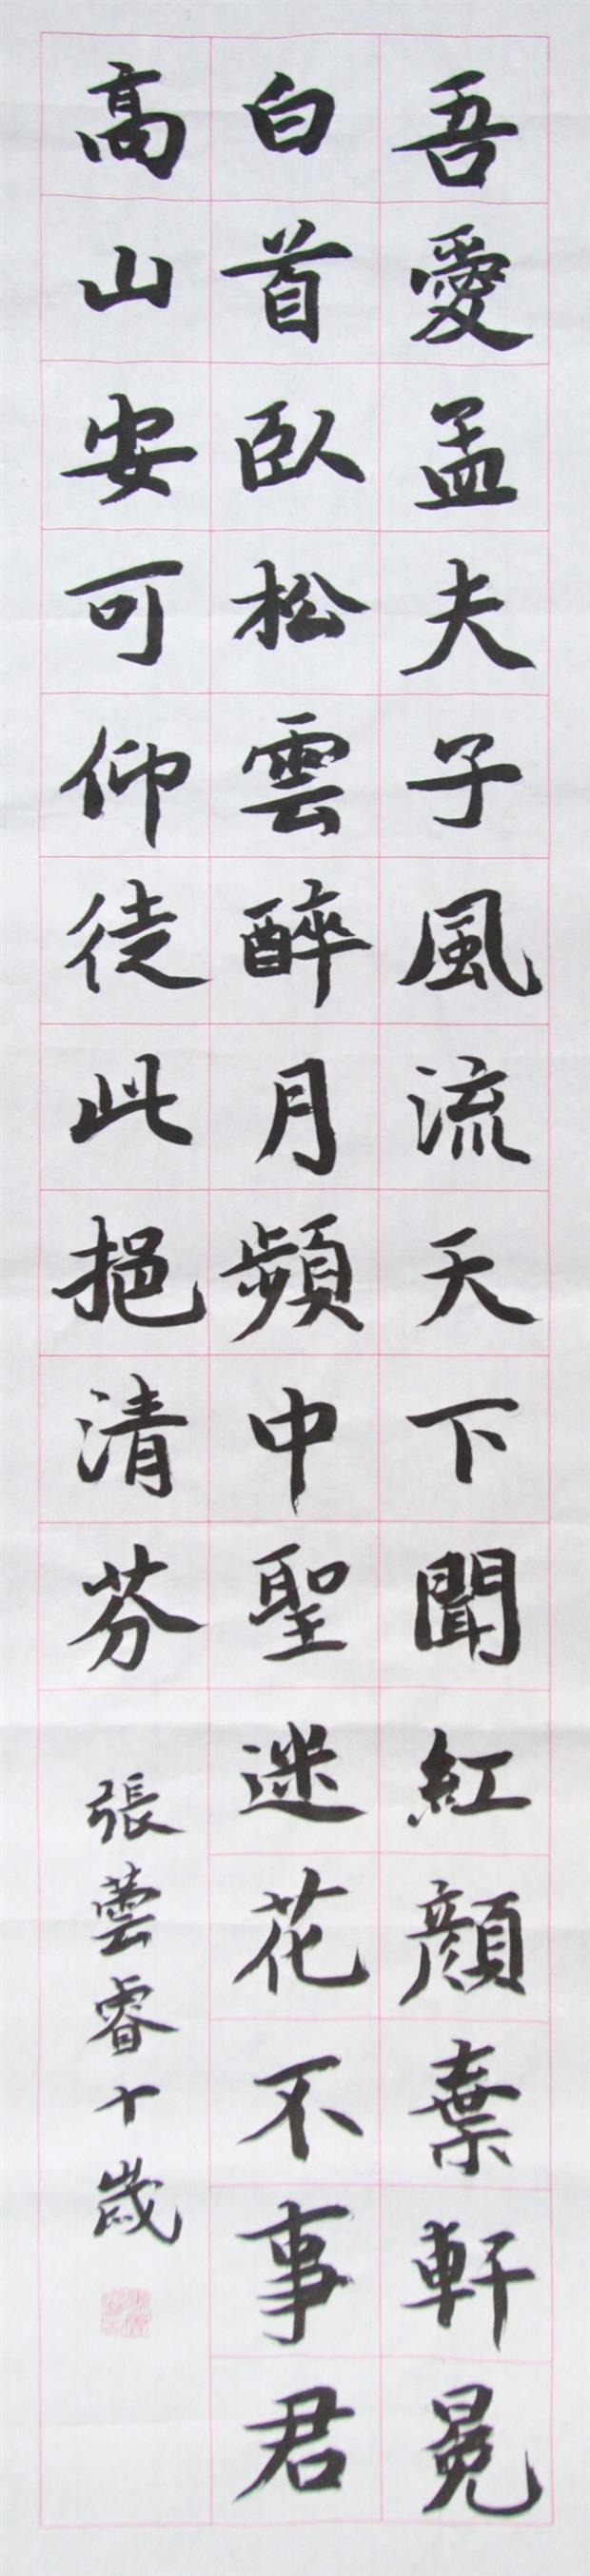 吾愛孟夫子風流天下聞紅顏棄軒冕
白首臥松雲醉月頻中聖迷花不事君
高山安可仰徒此挹清芬
張蕓睿十歲